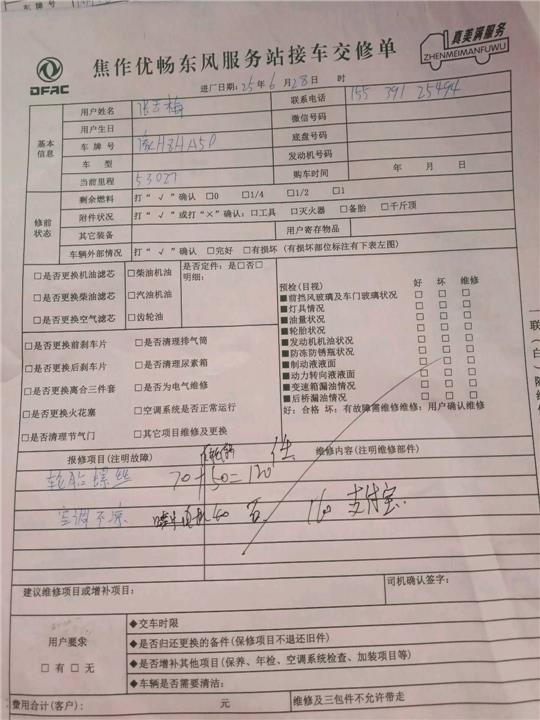 车牌号
DFAC
焦作优畅东风服务站接车交修单
真美满服务
ZHENMEIMANFUWU
进厂日期：25年6月28日 时
基本信息
用户姓名 联系电话 155 391 25494
用户生日 微信号码
车牌号 豫H8H A5D 底盘号码
车型 发动机号码
当前里程 53027 购车时间 年 月 日
修前状态
剩余燃料 打“√”确认 □0 □1/4 □1/2 □1
附件状况 打“√”或打“×”确认：□工具 □灭火器 □备胎 □千斤顶
其它装备 用户寄存物品
车辆外部情况 打“√”确认 □完好 □有损坏（有损坏部位标注有下表左图）
□是否更换机油滤芯 □柴油机油 是否定件：是□否□
明细：
□是否更换柴油滤芯 □汽油机油
□是否更换空气滤芯 □齿轮油
□是否更换前刹车片 □是否清理排气筒
□是否更换后刹车片 □是否清理尿素箱
□是否更换离合三件套 □是否为电气维修
□是否更换火花塞 □空调系统是否正常运行
□是否清理节气门 □其它项目维修及更换
预检(目视) 好 坏 维修
■前挡风玻璃及车门玻璃状况 □ □ □
■灯具情况 □ □ □
■油量状况 □ □ □
■轮胎状况 □ □ □
■发动机机油状况 □ □ □
■防冻防锈瓶状况 □ □ □
■制动液液面 □ □ □
■动力转向液液面 □ □ □
■变速箱漏油情况 □ □ □
■后桥漏油情况 □ □ □
好：合格 坏：有故障需维修维修：用户确认维修
报修项目(注明故障) 维修内容(注明维修部件)
轮胎螺丝 70+50=120
空调不凉 40 160 支付宝
建议维修项目或增补项目： 司机确认签字：
用户要求
□有 □无
◆交车时限
◆是否归还更换的备件(保修项目不退还旧件)
◆是否增补其他项目(保养、年检、空调系统检查、加装项目等)
◆车辆是否需要清洁：
费用合计(客户)： 元 维修及三包件不允许带走
联
白